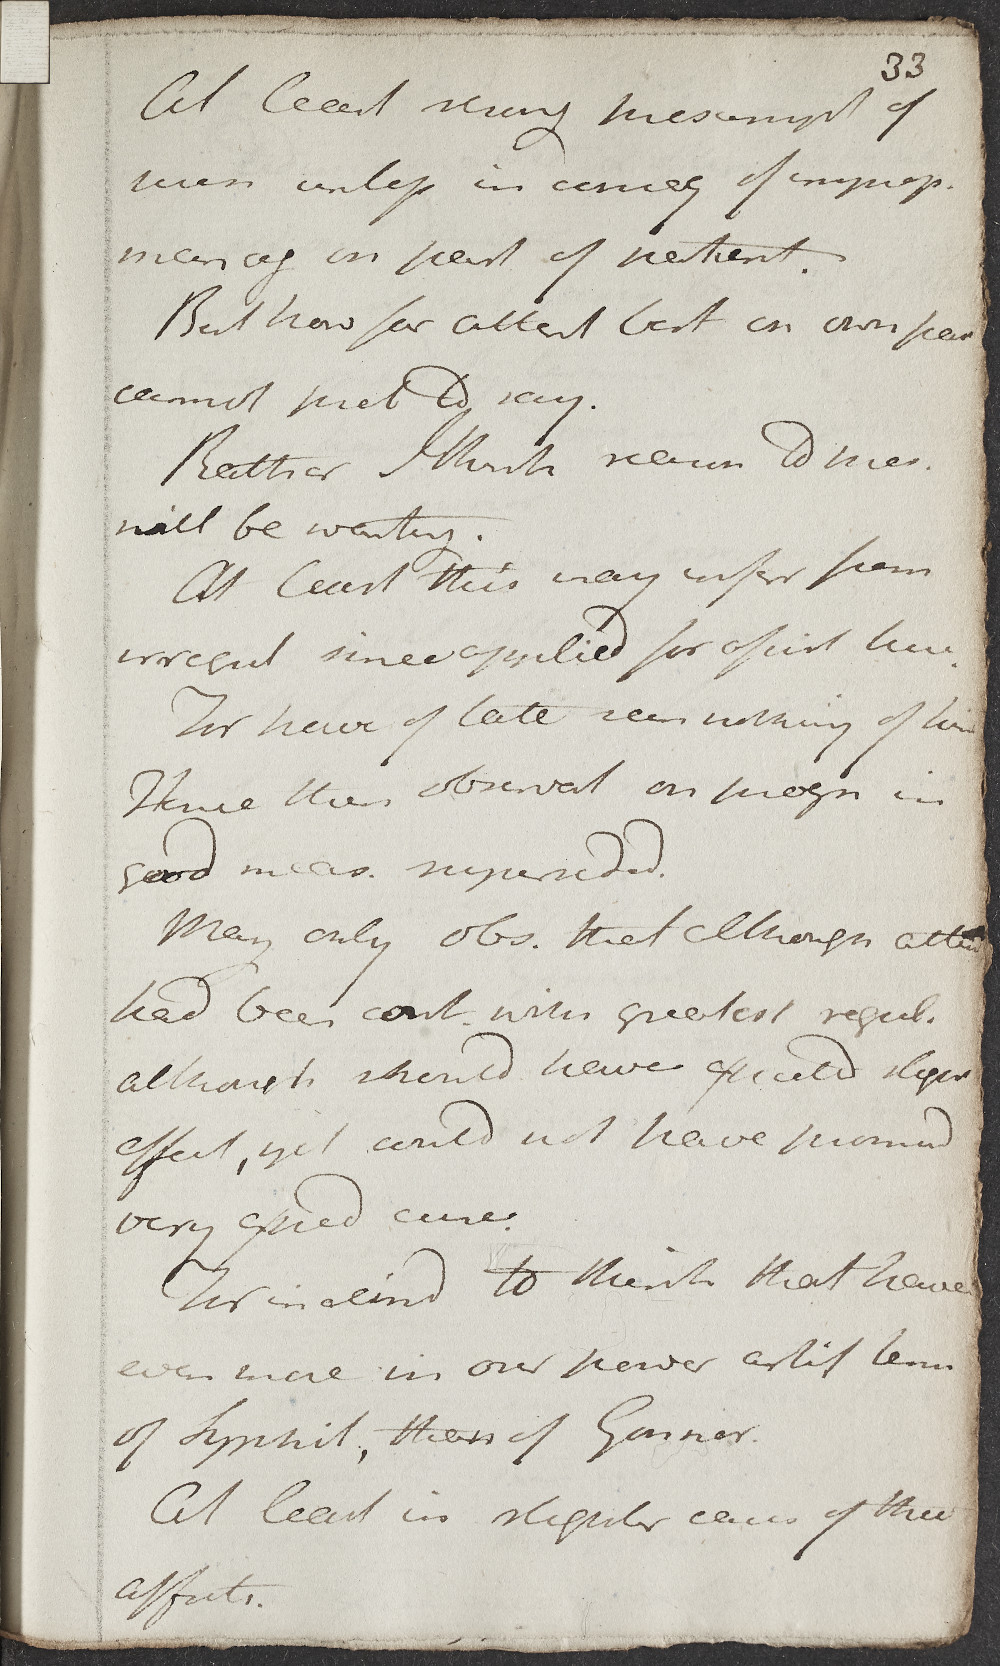 33
At least strong presumpt of
succes unless in conseq of improp.
manag on part of patient.
But how far attent best on own par
cannot pret to say.
Rather I think reason to pres.
will be wanting.
At least this may infer from
irregul since applied for assist here.
For have of late seen nothing of him
Hence then observat on progn in
good meas. superseded.
May only obs. that although atten
had been cont. with greatest regul.
although should have expected
effect, yet could not have promised
very speed cure.
For inclind to think that have
even more in our power artif term
of Syphil, than of Gonnor.
At least in slighter cases of these
affects.